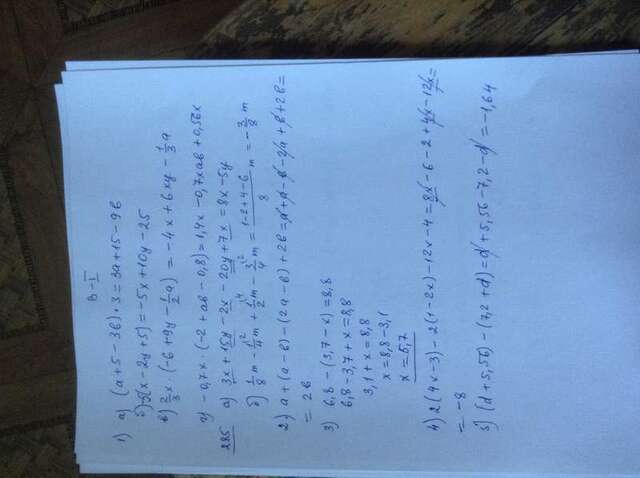 В-I
1) а) (a+5-3в)·3=3a+15-9в
б) -5(x-2y+5)=-5x+10y-25
в) 2/3x·(-6+9y-1/2a)=-4x+6xy-1/3a
г) -0,7x·(-2+aв-0,8)=1,4x-0,7xaв+0,56x
285 а) 3x+15y-2x-20y+7x=8x-5y
б) 1/8m-1/4m+1/2m-3/4m=(1-2+4-6)/8m=-3/8m
2) a+(a-в)-(2a-в)+2в=a+a-в-2a+в+2в=
=2в
3) 6,8-(3,7-x)=8,8
6,8-3,7+x=8,8
3,1+x=8,8
x=8,8-3,1
x=5,7
4) 2(4x-3)-2(1-2x)-12x-4=8x-6-2+4x-12x=
=-8
5) (d+5,56)-(7,2+d)=d+5,56-7,2-d=-1,64